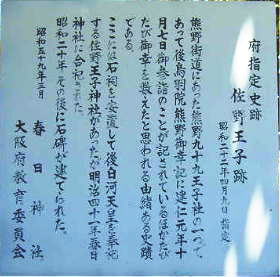 府指定史跡
佐野王子跡
昭和二十二年四月九日指定
熊野街道にあった熊野九十九王子社の一つで、
あって後鳥羽院熊野御幸記に建仁元年十
月七日御参詣のことが記されているほかたび
たび御幸を数えたと思われる由緒ある史蹟
である。
ここには石祠を安置して後白河天皇を奉祀
する佐野王子神社があったが明治四十一年春日
神社に合祀された。
昭和二十年その後に石碑が建てられた。
昭和五十九年三月
春日神社
大阪府教育委員会